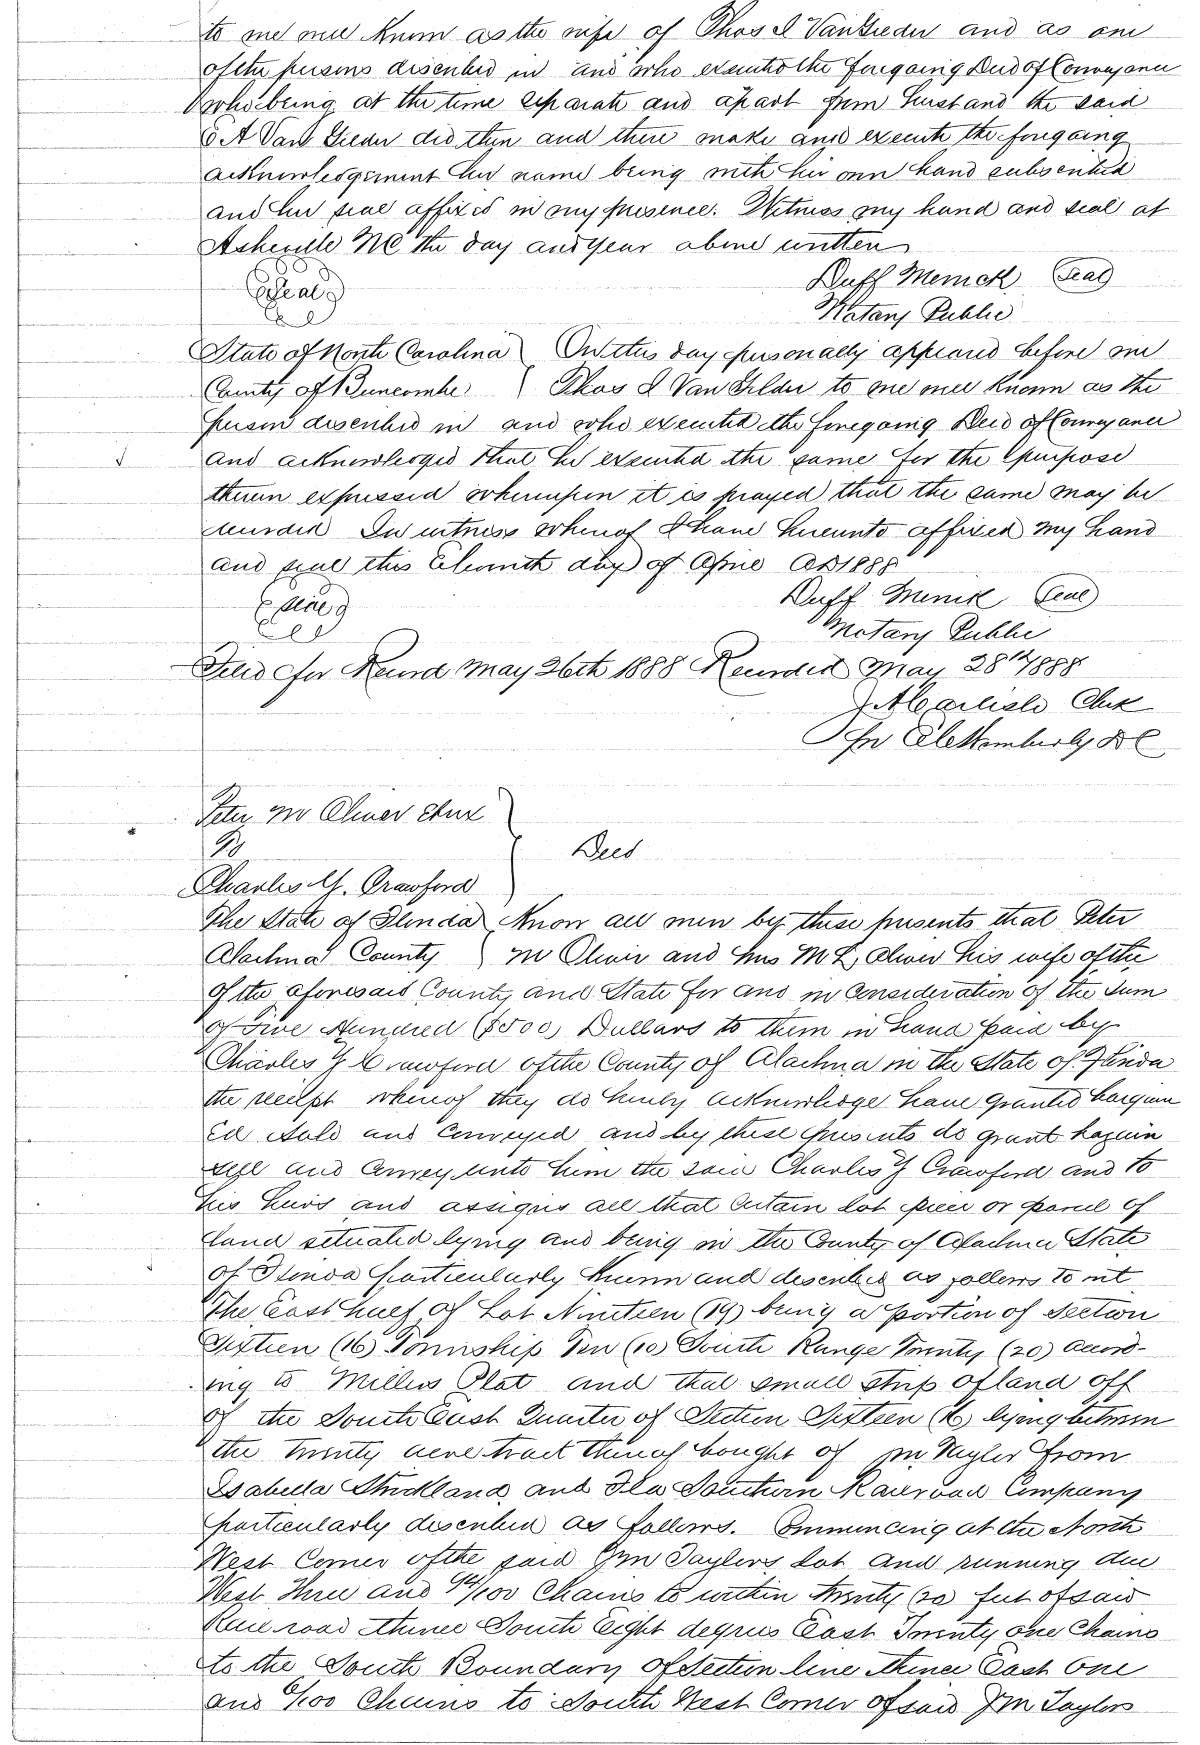 to me well known as the wife of Thos I VanGieder and as one
of the persons described in and who executed the foregoing Deed of Conveyance
who being at the time separate and apart from husband the said
A Van Gieder did then and there make and execute the foregoing
acknowledgement her name being with her own hand subscribed
and her seal affixed in my presence. Witness my hand and seal at
Asheville NC the day and year above written
Duff Merrick (Seal)
(Seal)
Notary Public
State of North Carolina } On this day personally appeared before me
County of Buncombe } Thos I VanGilder to me well known as the
person described in and who executed the foregoing Deed of Conveyance
and acknowledged that he executed the same for the purpose
therein expressed whereupon it is prayed that the same may be
recorded In witness whereof I have hereunto affixed my hand
and seal this Eleventh day of April AD1888
Duff Merrick (Seal)
(Seal)
Notary Public
Filed for Record May 26th 1888 Recorded May 28th 1888
J A Carlisle Clerk
DC
Peter M Oliver Et ux }
To } Deed
Charles Y. Crawford }
The State of Florida } Know all men by these presents that Peter
Alachua County } M Oliver and Mrs M L Oliver his wife of the
of the aforesaid County and State for and in consideration of the sum
of Five Hundred ($500) Dollars to them in hand paid by
Charles Y Crawford of the County of Alachua in the State of Florida
the receipt whereof they do hereby acknowledge have granted bargain
ed sold and conveyed and by these presents do grant bargain
sell and convey unto him the said Charles Y Crawford and to
his heirs and assigns all that certain lot piece or parcel of
land situated lying and being in the County of Alachua State
of Florida particularly known and described as follows to wit
The East half of Lot Nineteen (19) being a portion of Section
Sixteen (16) Township Ten (10) South Range Twenty (20) accord-
ing to Millers Plat and that small strip of land off
of the South East Quarter of Section Sixteen (16) lying between
the twenty acre tract thereof bought of Jm Taylor from
Isabella Strickland and Fla Southern Railroad Company
particularly described as follows. Commencing at the North
West Corner of the said Jm Taylors lot and running due
West Three and 94/100 Chains to within twenty (20 feet of said
Rail road thence South Eight degrees East Twenty one Chains
to the South Boundary of Section line thence East one
and 6/100 Chains to South West Corner of said Jm Taylors